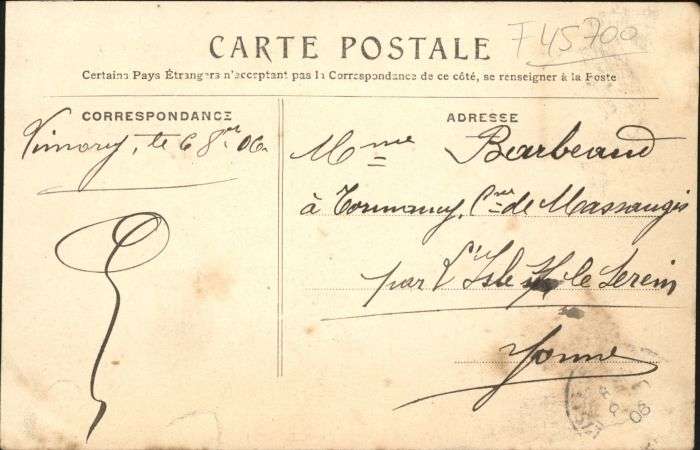 F45700
CARTE POSTALE
Certains Pays Étrangers n'acceptant pas la Correspondance de ce côté, se renseigner à la Poste
CORRESPONDANCE
Vimory, le 6 8bre 06.
ADRESSE
Mme Barbeaud
à Tormancy, Cne de Massangis
par L'Isle s/ le Serein
Yonne
06